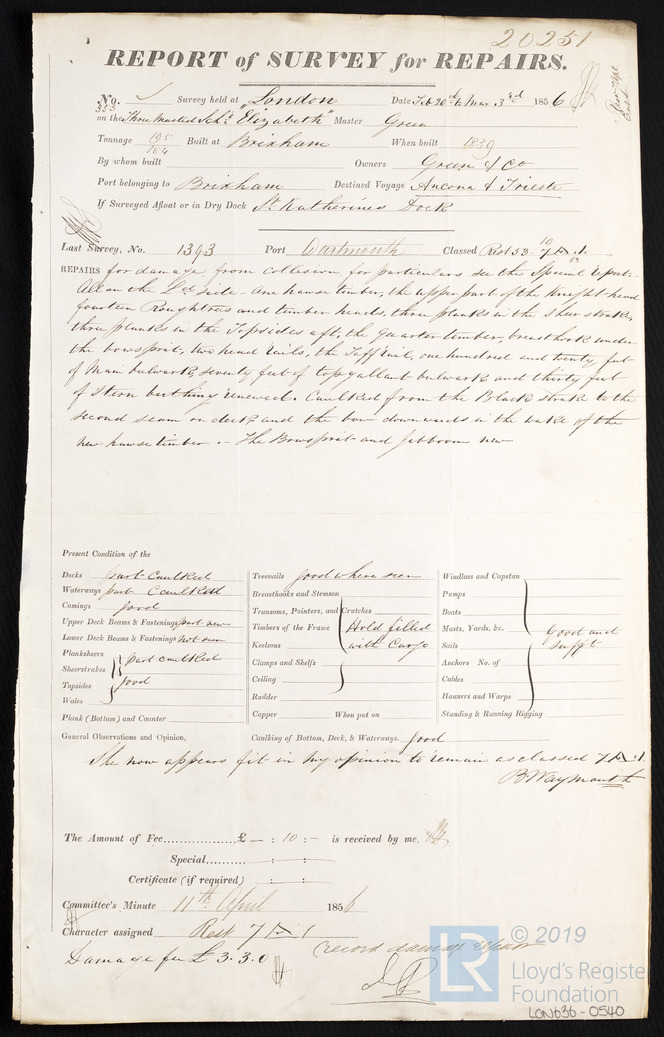 20251
REPORT of SURVEY for REPAIRS.
No. 353 Survey held at London Date Feb 20th to Mar 3rd 1856
on the Three Masted Schr "Elizabeth" Master Green
Tonnage 195 184 Built at Brixham When built 1839
By whom built Owners Green & Co
Port belonging to Brixham Destined Voyage Ancona & Trieste
If Surveyed Afloat or in Dry Dock St Katherines Dock
Last Survey, No. 1393 Port Dartmouth Classed Rest 53 10 7 A.1. 53
REPAIRS for damage from collision for particulars see the Special Report.
All on the side - One hawse timber, the upper part of the Knight head
fourteen Roughtrees and timber heads, three planks in the sheer strake,
three planks in the Topsides aft, the Quarter timber, breasthook under
the bowsprit, two head rails, the Taff rail, one hundred and twenty feet
of Main bulwark, seventy feet of topgallant bulwark and thirty feet
of Stern berthing renewed. Caulked from the Black strake to the
second seam on deck and the bow downwards in the wake of the
new hawse timber. - The Bowsprit and Jibboom new
Present Condition of the
Decks part caulked
Waterways part caulked
Comings good
Upper Deck Beams & Fastenings part new
Lower Deck Beams & Fastenings not seen
Planksheers
Sheerstrakes part caulked
Topsides good
Wales
Plank (Bottom) and Counter
Treenails good where seen
Breasthooks and Stemson
Transoms, Pointers, and Crutches
Timbers of the Frame Hold filled
Keelsons with Cargo
Clamps and Shelfs
Ceiling
Rudder
Copper When put on
Windlass and Capstan
Pumps
Boats
Masts, Yards, &c. Good and
Sails sufft
Anchors No. of
Cables
Hawsers and Warps
Standing & Running Rigging
General Observations and Opinion, Caulking of Bottom, Deck, & Waterways. good
She now appears fit in my opinion to remain as classed 7 A.1.
B Waymouth
The Amount of Fee £ - : 10 : - is received by me,
Special : :
Certificate (if required) : :
Committee's Minute 11th April 1856
Character assigned Rest 7 A 1
Damage fee £ 3.3.0
record damage repair
LR
© 2019
Lloyd's Register
Foundation
LON636-0540